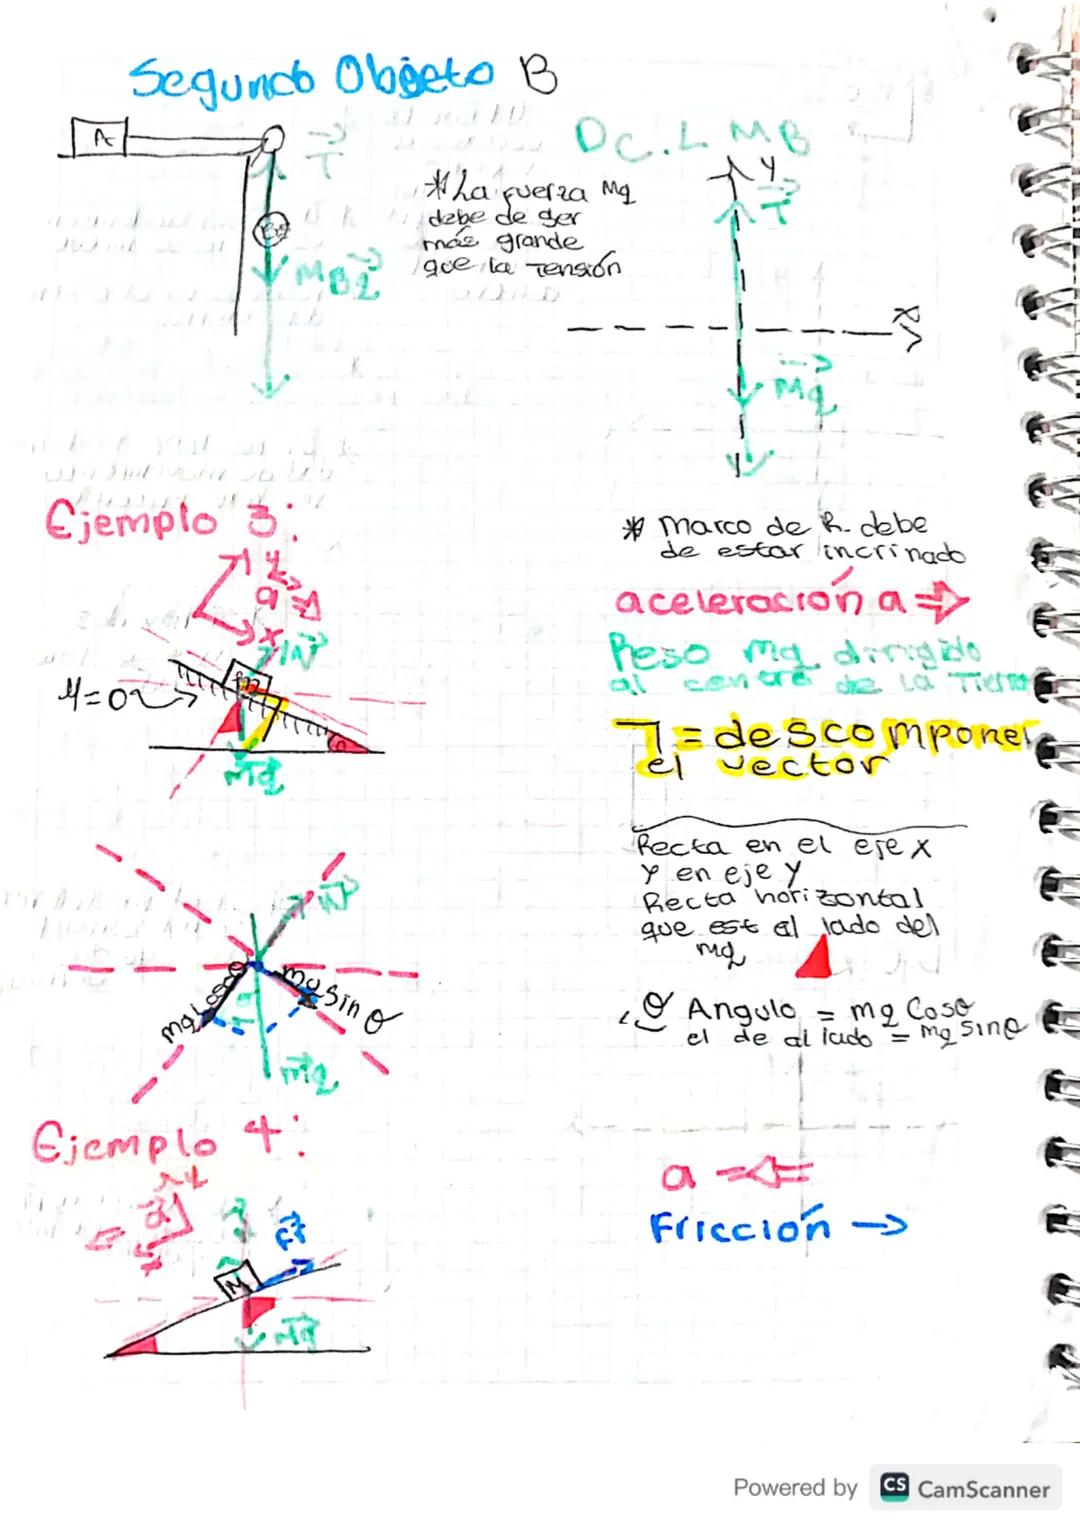 Segundo Objeto B
A
T
MBg
*La fuerza Mg
debe de ser
más grande
que la Tensión
D.C.L MB
y
T
x
Mg
Ejemplo 3:
y
a
x
N
m
μ=0
θ
mg
* Marco de R. debe
de estar incrinado
aceleración a ⇒
Peso mg dirigido
al centro de la Tierra
= descomponer
el vector
N
mg Cosθ
mg Sin θ
mg
Recta en el eje x
y en eje y
Recta horizontal
que est al lado del
mg
θ Angulo = mg Cosθ
el de al lado = mg Sinθ
Ejemplo 4:
y
a
x
Fr
M
mg
a
Fricción →
Powered by CS CamScanner